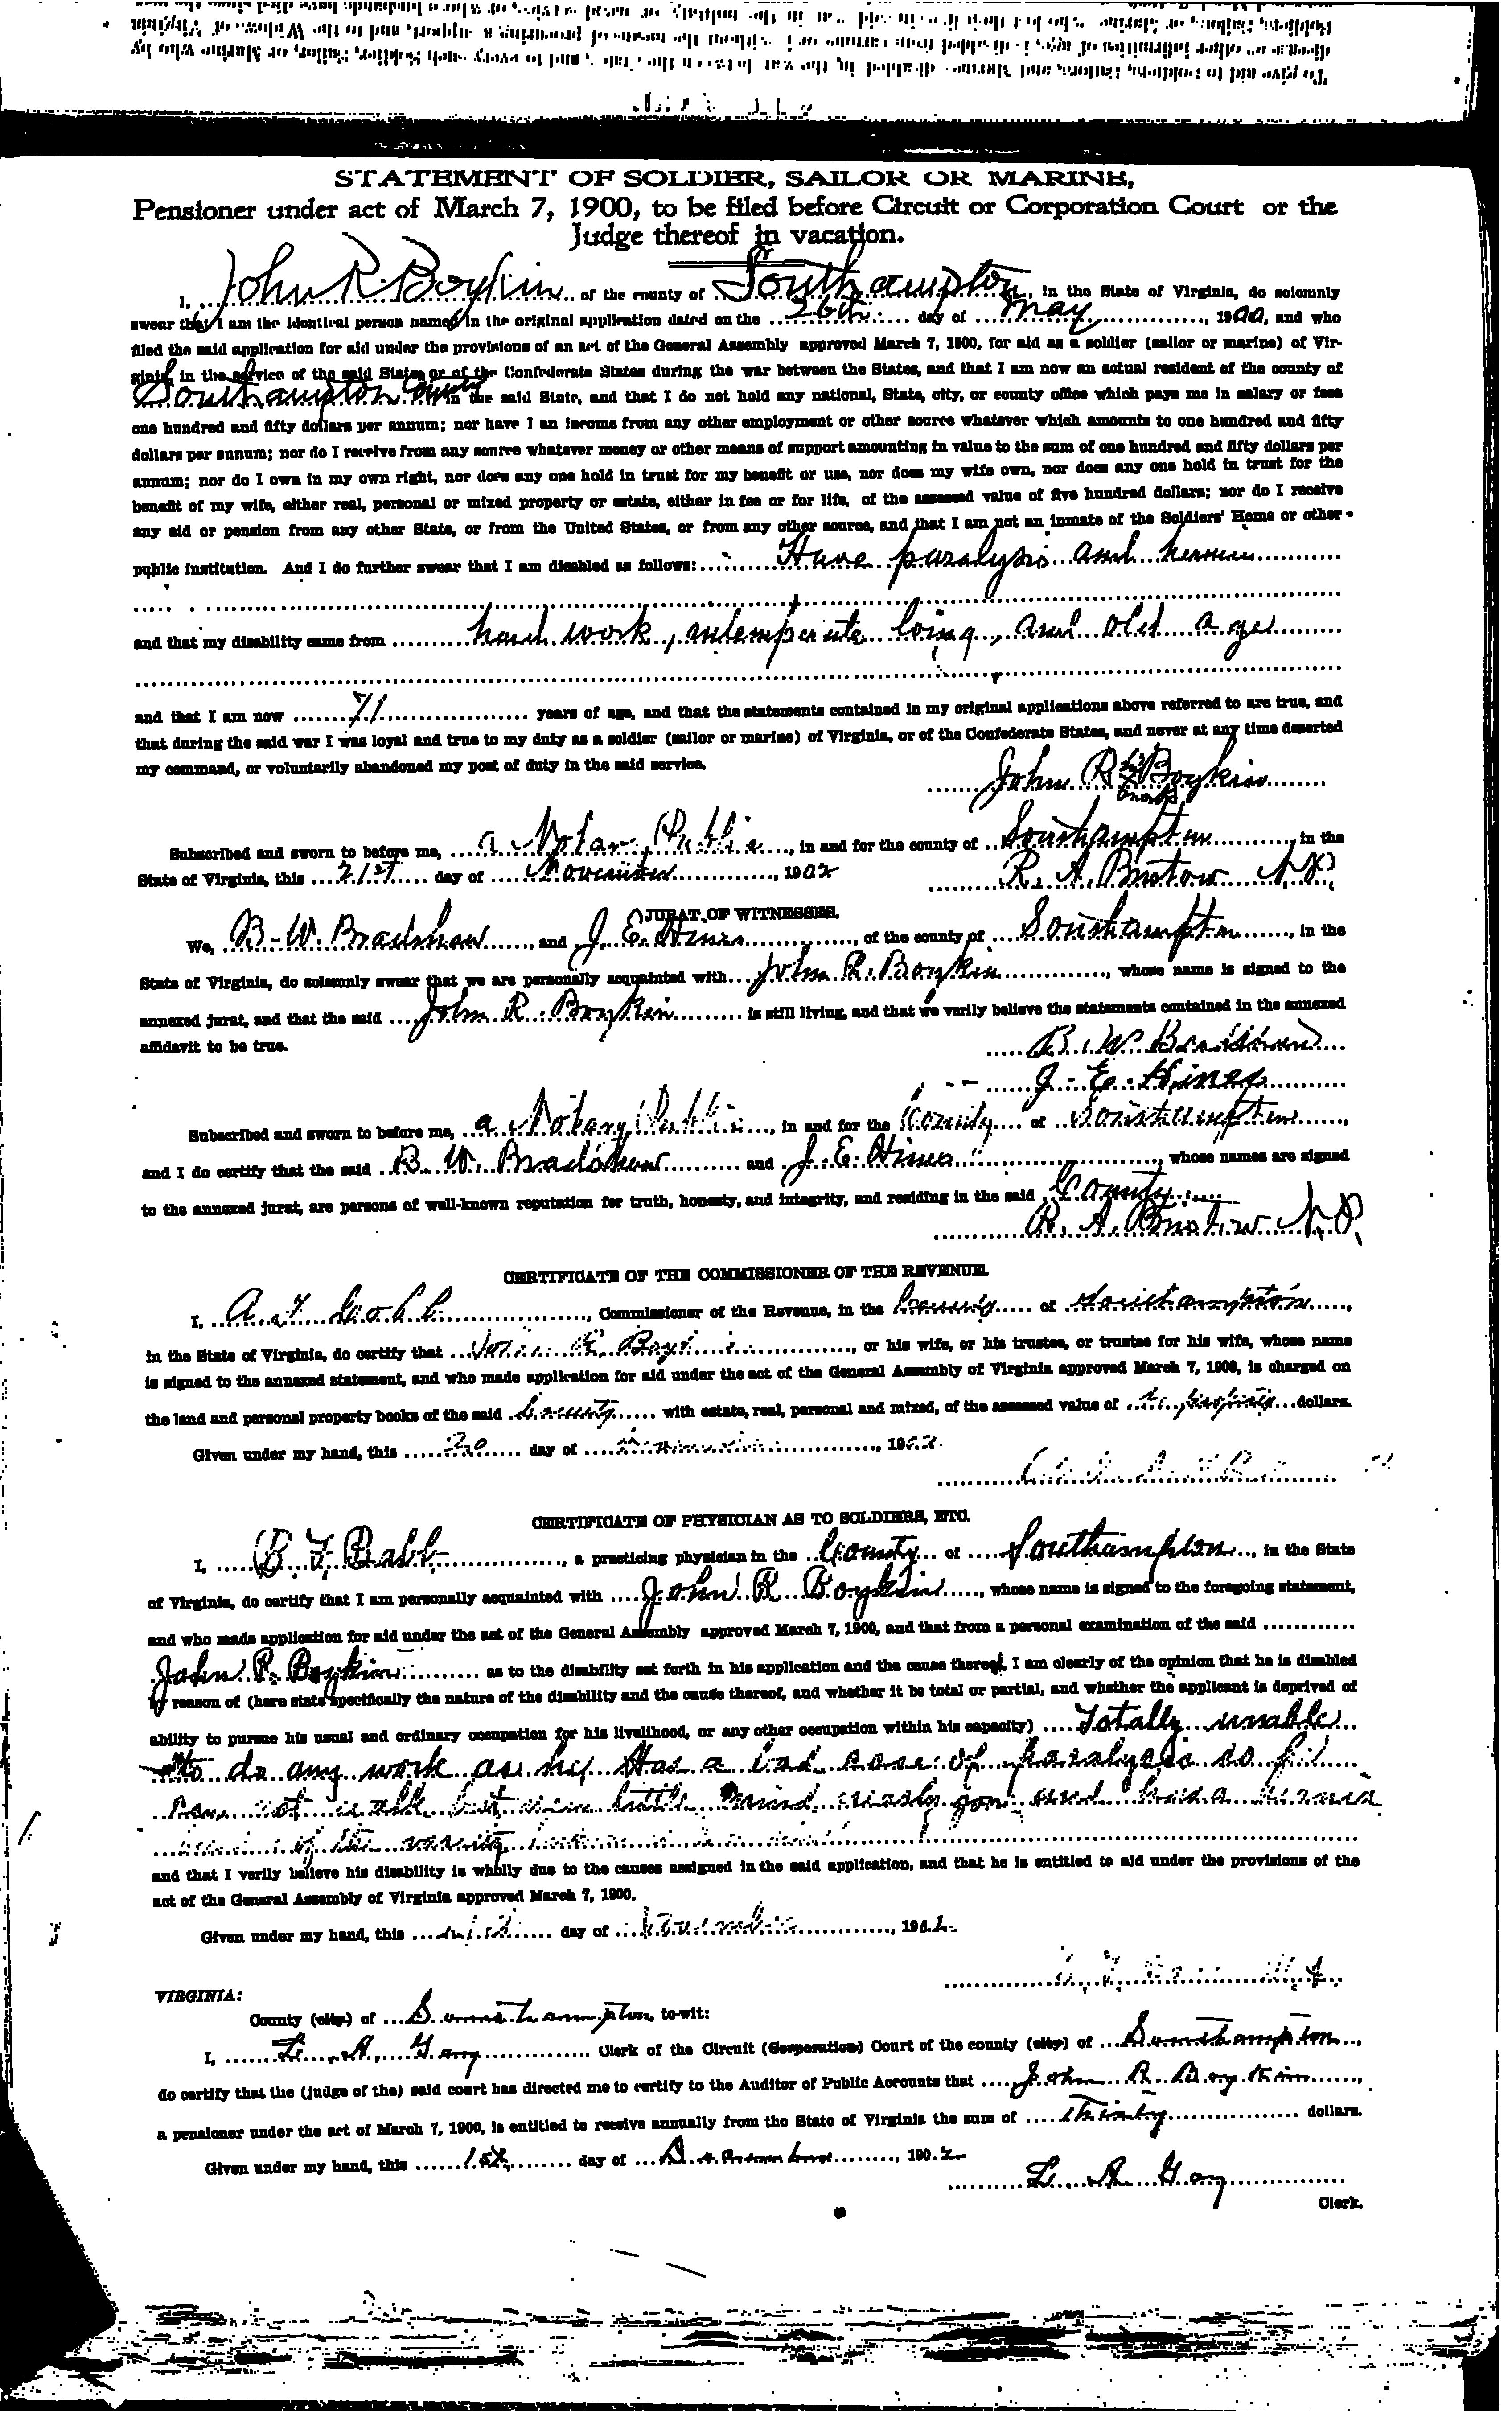 To give aid to soldiers, sailors, and marines disabled in the war between the States, and to every such Soldier, Sailor, or Marine who by
disease or other infirmities of age, is disabled from earning or is without the means of procuring a support, and to the Widows of Virginia
Soldiers, Sailors, or Marines who lost their lives in said war in the military or naval service
STATEMENT OF SOLDIER, SAILOR OR MARINE,
Pensioner under act of March 7, 1900, to be filed before Circuit or Corporation Court or the
Judge thereof in vacation.
I, John R. Boykin of the county of Southampton, in the State of Virginia, do solemnly
swear that I am the identical person named in the original application dated on the 26th day of May, 1900, and who
filed the said application for aid under the provisions of an act of the General Assembly approved March 7, 1900, for aid as a soldier (sailor or marine) of Vir-
ginia, in the service of the said State, or of the Confederate States during the war between the States, and that I am now an actual resident of the county of
Southampton County in the said State, and that I do not hold any national, State, city, or county office which pays me in salary or fees
one hundred and fifty dollars per annum; nor have I an income from any other employment or other source whatever which amounts to one hundred and fifty
dollars per annum; nor do I receive from any source whatever money or other means of support amounting in value to the sum of one hundred and fifty dollars per
annum; nor do I own in my own right, nor does any one hold in trust for my benefit or use, nor does my wife own, nor does any one hold in trust for the
benefit of my wife, either real, personal or mixed property or estate, either in fee or for life, of the assessed value of five hundred dollars; nor do I receive
any aid or pension from any other State, or from the United States, or from any other source, and that I am not an inmate of the Soldiers' Home or other
public institution. And I do further swear that I am disabled as follows: Have paralysis and
and that my disability came from hard work, and old age
and that I am now 71 years of age, and that the statements contained in my original applications above referred to are true, and
that during the said war I was loyal and true to my duty as a soldier (sailor or marine) of Virginia, or of the Confederate States, and never at any time deserted
my command, or voluntarily abandoned my post of duty in the said service.
John R his x mark Boykin
Subscribed and sworn to before me, a Notary Public, in and for the county of Southampton, in the
State of Virginia, this 21st day of November, 1902
R. A. Bristow N.P.
JURAT OF WITNESSES.
We, B. W. Bradshaw, and J. E. Hines, of the county of Southampton, in the
State of Virginia, do solemnly swear that we are personally acquainted with John R. Boykin, whose name is signed to the
annexed jurat, and that the said John R. Boykin is still living, and that we verily believe the statements contained in the annexed
affidavit to be true.
B. W. Bradshaw
J. E. Hines
Subscribed and sworn to before me, a Notary Public, in and for the County of Southampton,
and I do certify that the said B. W. Bradshaw and J. E. Hines, whose names are signed
to the annexed jurat, are persons of well-known reputation for truth, honesty, and integrity, and residing in the said County
R. A. Bristow N.P.
CERTIFICATE OF THE COMMISSIONER OF THE REVENUE.
I, A. J. Cobb, Commissioner of the Revenue, in the County of Southampton,
in the State of Virginia, do certify that John R Boykin, or his wife, or his trustee, or trustee for his wife, whose name
is signed to the annexed statement, and who made application for aid under the act of the General Assembly of Virginia approved March 7, 1900, is charged on
the land and personal property books of the said County with estate, real, personal and mixed, of the assessed value of no property dollars.
Given under my hand, this 20 day of November, 1902.
CERTIFICATE OF PHYSICIAN AS TO SOLDIERS, ETC.
I, B. F. Babb, a practicing physician in the County of Southampton, in the State
of Virginia, do certify that I am personally acquainted with John R Boykin, whose name is signed to the foregoing statement,
and who made application for aid under the act of the General Assembly approved March 7, 1900, and that from a personal examination of the said
John R. Boykin as to the disability set forth in his application and the cause thereof, I am clearly of the opinion that he is disabled
by reason of (here state specifically the nature of the disability and the cause thereof, and whether it be total or partial, and whether the applicant is deprived of
ability to pursue his usual and ordinary occupation for his livelihood, or any other occupation within his capacity) Totally unable
to do any work as he has a bad case of paralysis so he
can not walk but very little mind nearly gone and has a hernia
of the
and that I verily believe his disability is wholly due to the causes assigned in the said application, and that he is entitled to aid under the provisions of the
act of the General Assembly of Virginia approved March 7, 1900.
Given under my hand, this 21st day of November, 1902
VIRGINIA:
County (city) of Southampton, to-wit:
I, L. A. Gay Clerk of the Circuit (Corporation) Court of the county (city) of Southampton,
do certify that the (judge of the) said court has directed me to certify to the Auditor of Public Accounts that John R. Boykin,
a pensioner under the act of March 7, 1900, is entitled to receive annually from the State of Virginia the sum of Thirty dollars.
Given under my hand, this 1st day of December, 1902
L. A. Gay
Clerk.